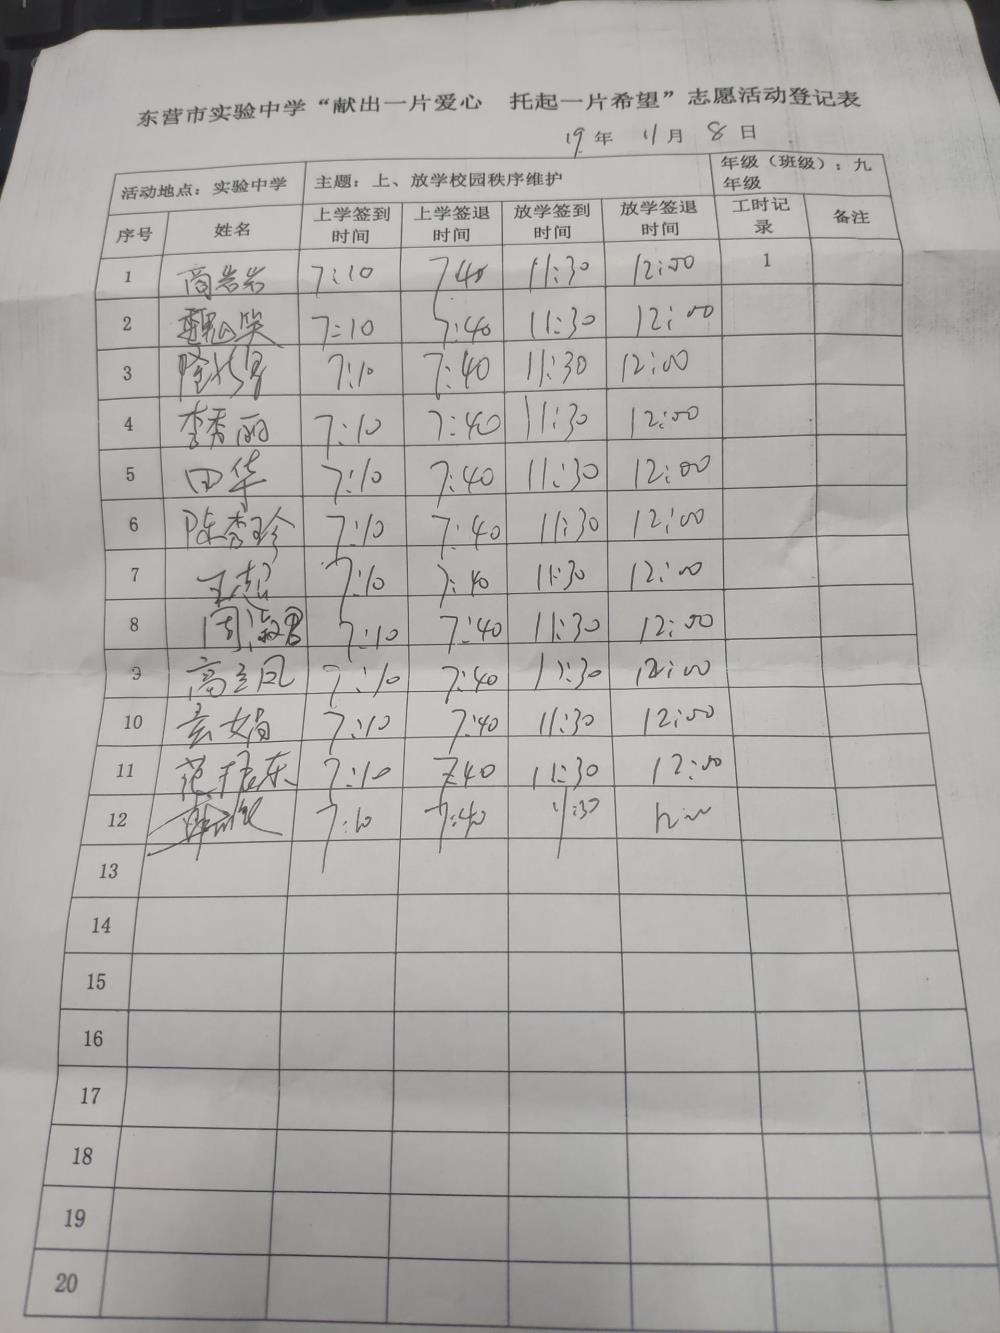 东营市实验中学“献出一片爱心 托起一片希望”志愿活动登记表
19年 11月 8日
活动地点：实验中学 主题：上、放学校园秩序维护 年级（班级）：九年级
序号 姓名 上学签到时间 上学签退时间 放学签到时间 放学签退时间 工时记录 备注
1 高岩岩 7:10 7 40 11:30 12:00 1
2 7:10 7:40 11:30 12:00
3 7:10 7:40 11:30 12:00
4 李秀丽 7:10 7:40 11:30 12:00
5 田华 7:10 7:40 11:30 12:00
6 陈秀珍 7:10 7:40 11:30 12:00
7 7:10 7:40 11:30 12:00
8 周淑君 7:10 7:40 11:30 12:00
9 高立凤 7:10 7:40 11:30 12:00
10 7:10 7:40 11:30 12:00
11 范振东 7:10 7 40 11:30 12:00
12 7:10 7:40
13
14
15
16
17
18
19
20